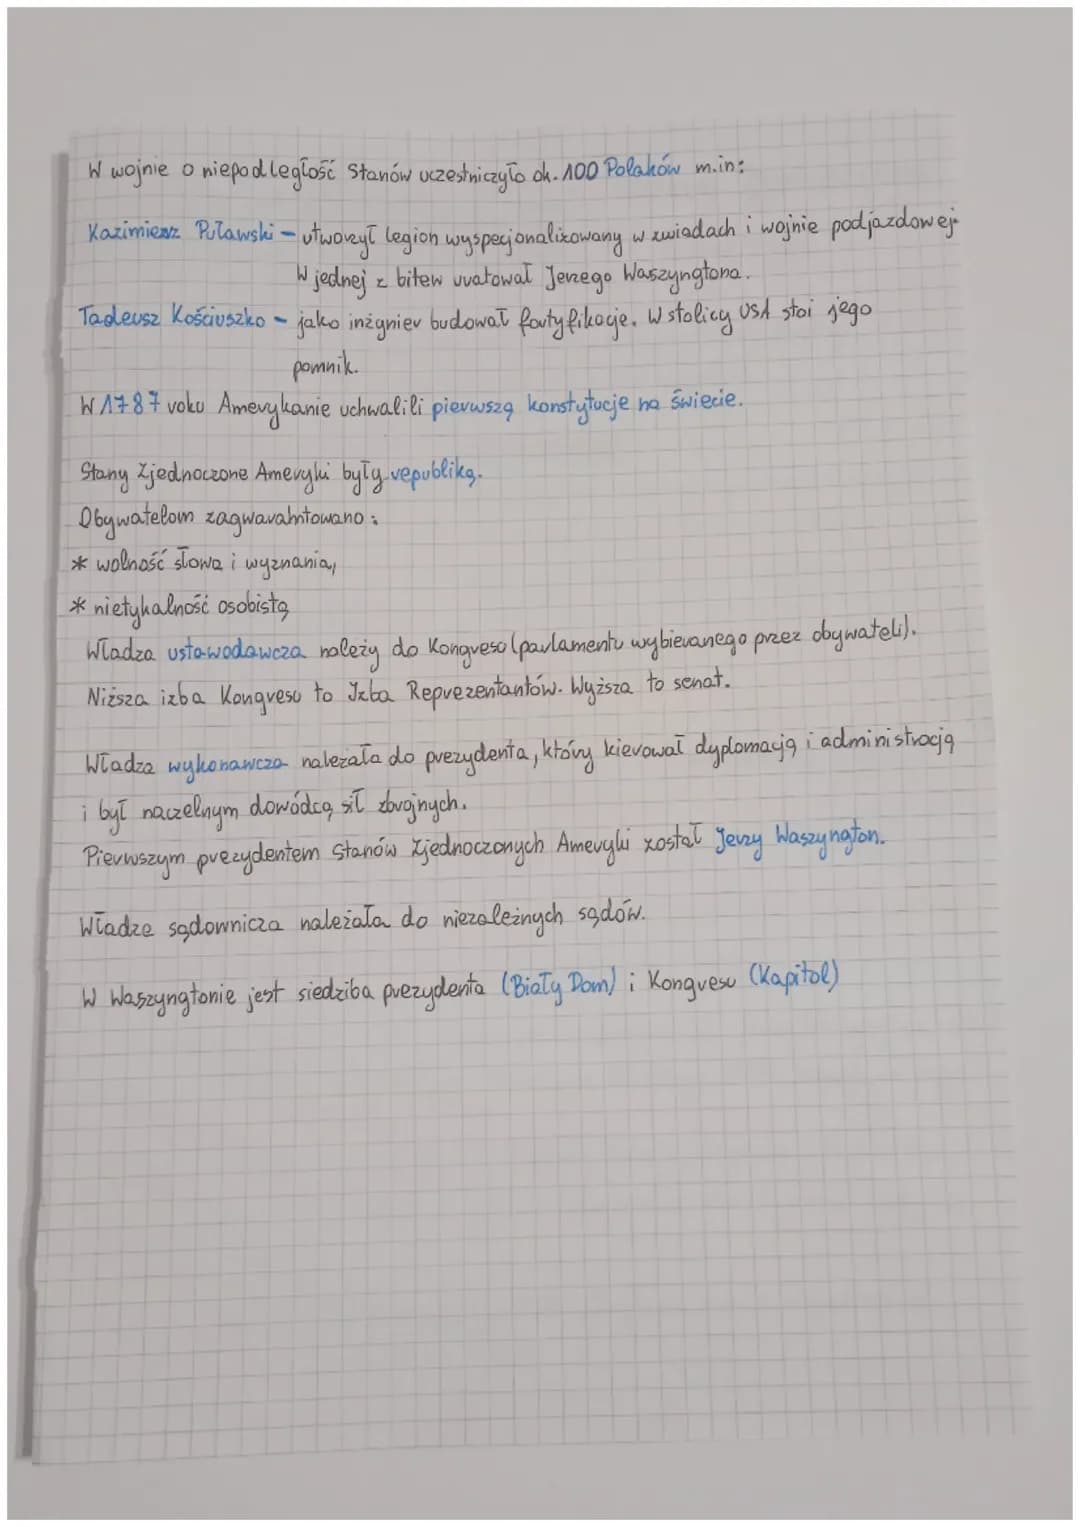 W wojnie o niepodległość Stanów uczestniczyło ok. 100 Polaków m.in:
Kazimierz Puławski – utworzył legion wyspecjonalizowany w zwiadach i wojnie podjazdowej.
W jednej z bitew uratował Jerzego Waszyngtona.
Tadeusz Kościuszko – jako inżynier budował fortyfikacje. W stolicy USA stoi jego
pomnik.
W 1787 roku Amerykanie uchwalili pierwszą konstytucje na świecie.
Stany Zjednoczone Ameryki były republiką.
Obywatelom zagwarahntowano:
* wolność słowa i wyznania,
* nietykalność osobistą
Władza ustawodawcza należy do Kongresu (parlamentu wybieranego przez obywateli).
Niższa izba Kongresu to Izba Reprezentantów. Wyższa to senat.
Władza wykonawcza należała do prezydenta, który kierował dyplomacją i administracją
i był naczelnym dowódcą sił zbrojnych.
Pierwszym prezydentem Stanów Zjednoczonych Ameryki został Jerzy Waszyngton.
Władze sądownicza należała do niezależnych sądów.
W Waszyngtonie jest siedziba prezydenta (Biały Dom) i Kongresu (Kapitol)